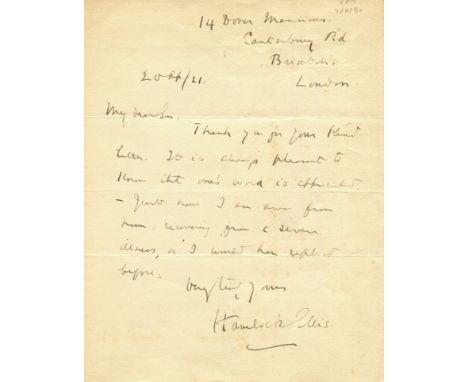 14 Dover Mansions.
Canterbury Rd
Brixton
London.
20 /21.
My dear Sir,
Thank you for your kind
letter. It is always pleasant to
know that one's work is appreciated.
– Just now I am away from
home, recovering from a severe
illness, or I would have replied
before.
Very truly yours
Havelock Ellis.